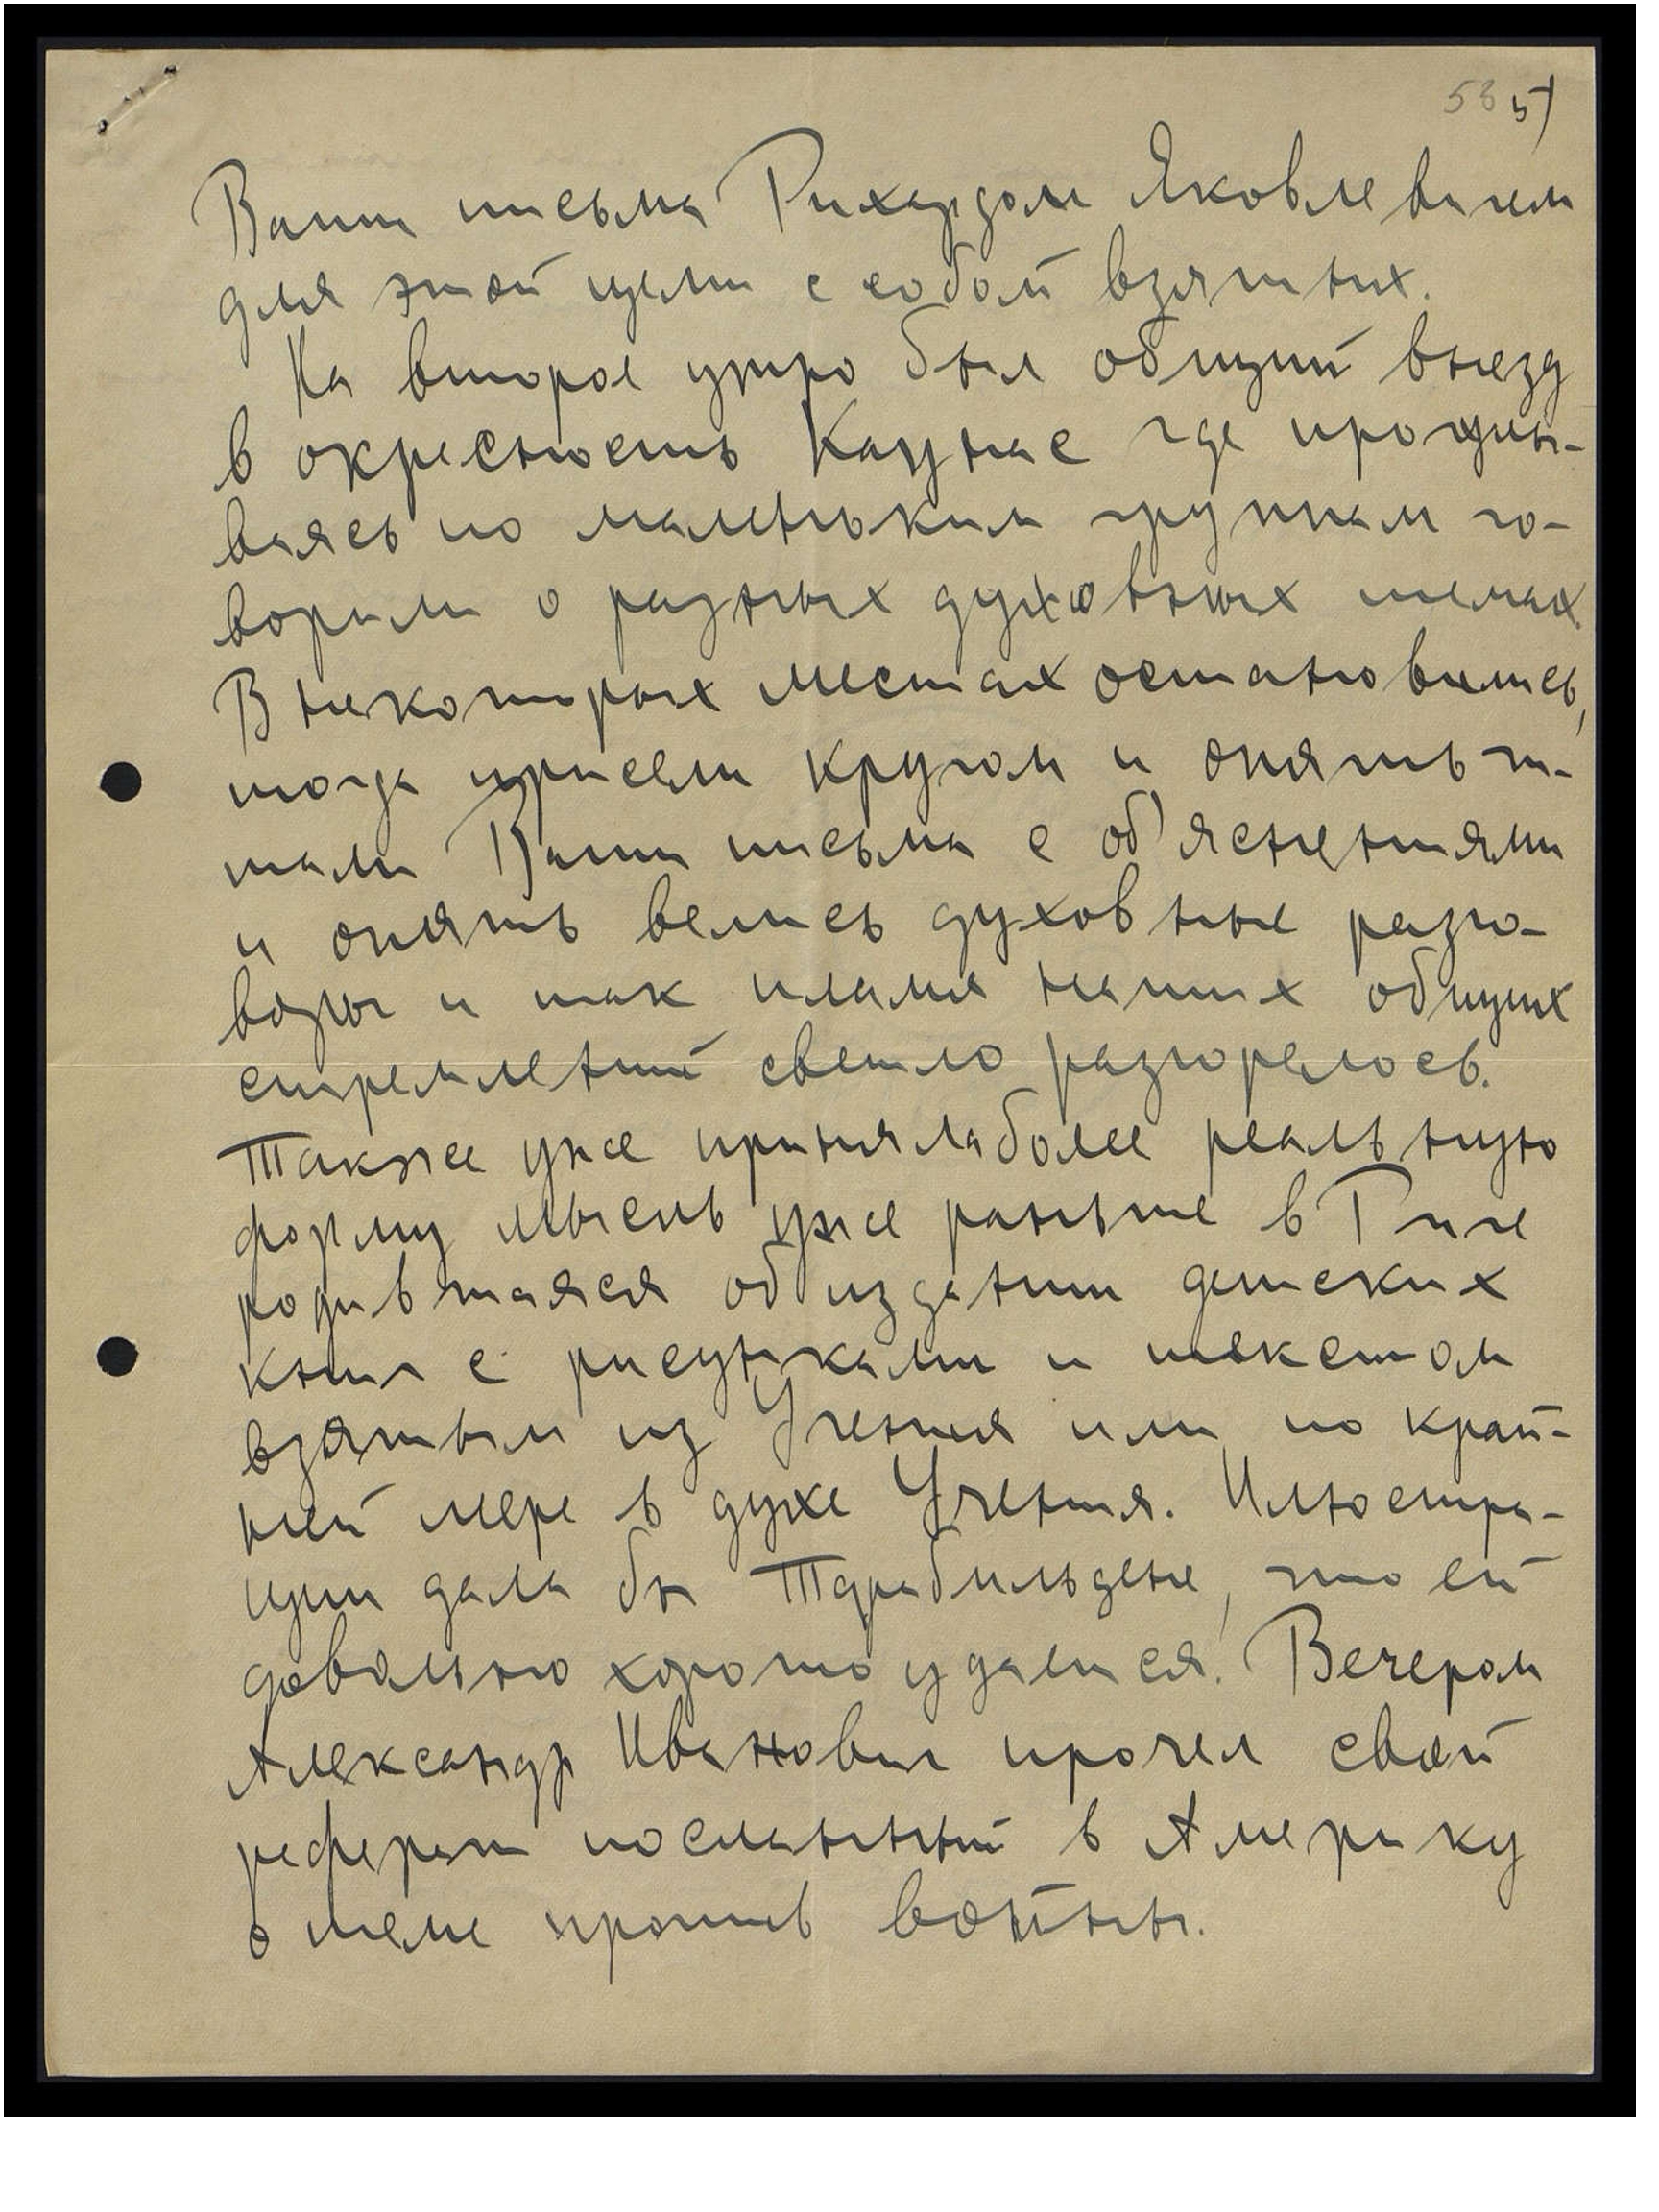 53 5)
Ваши письма Рихардом Яковлевичем
для этой цели с собой взятых.
На второе утро был общий выезд
в окрестность Каунас где прогулы-
ваясь по маленьким группам го-
ворили о разных духовных темах.
В некоторых местах остановились,
тогда присели кругом и опять чи-
тали Ваши письма с об'яснениями
и опять велись духовные разго-
воры и так пламя наших общих
стремлений светло разгорелось.
Также уже приняла более реальную
форму мысль уже раньше в Риге
родившаяся об издании детских
книг с рисунками и текстом
взятым из Учения или по край-
ней мере в духе Учения. Илюстра-
ции дала бы Тарабильдене, что ей
довольно хорошо удается. Вечером
Александр Иванович прочел свой
реферат посланный в Америку
о теме против войны.